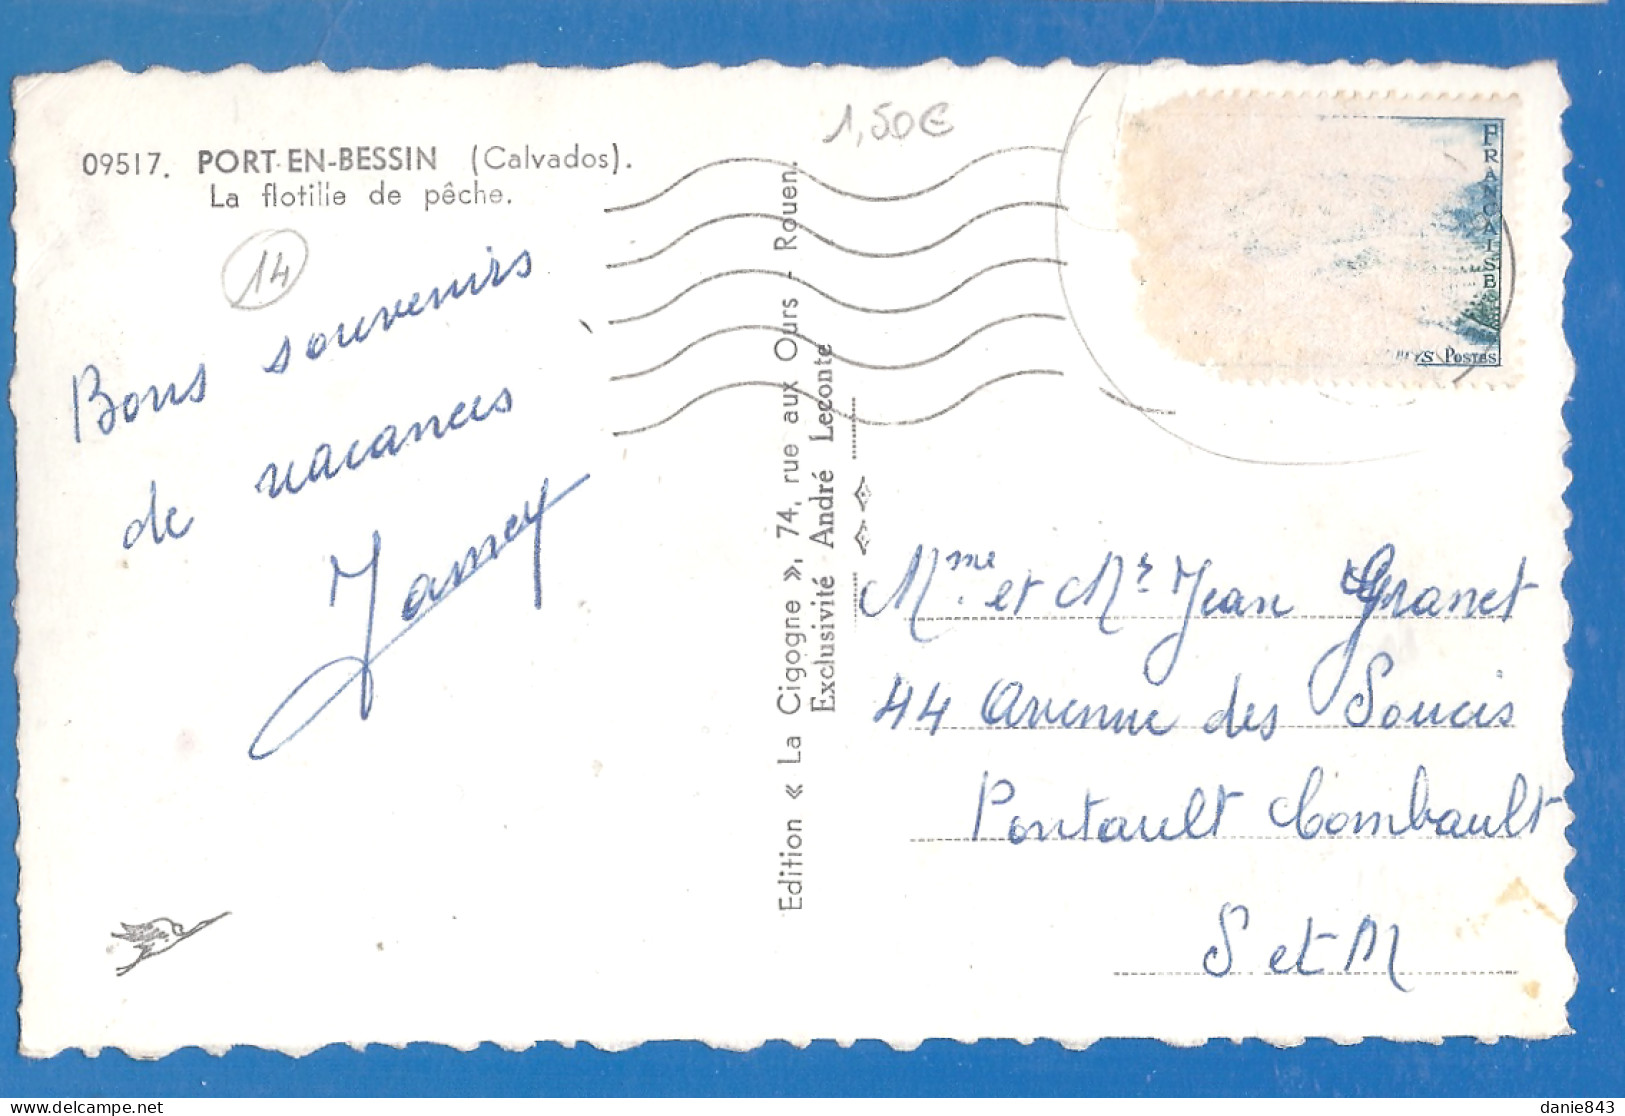 1,50€
09517. PORT-EN-BESSIN (Calvados).
La flotille de pêche.
14
Bons souvenirs
de vacances
Edition « La Cigogne », 74, rue aux Ours - Rouen.
Exclusivité André Leconte
FRANÇAISE
Postes
Mme. et Mr Jean Granet
44 Avenue des Soucis
Pontault Combault
S et M
danie843